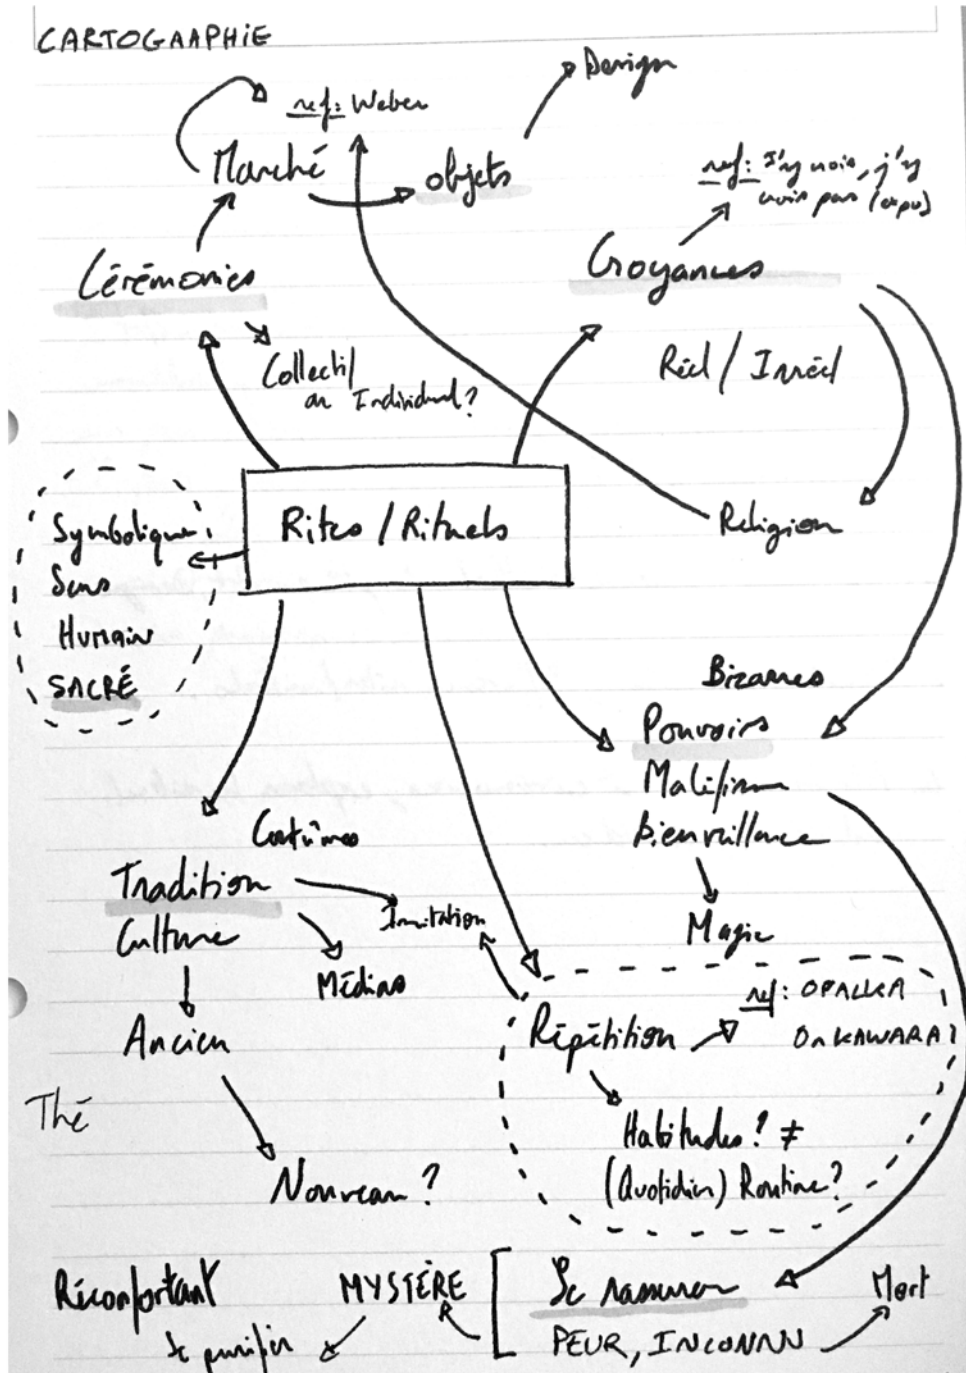 CARTOGRAPHIE
Design
ref: Weber
Marché
objets
ref: J'y crois, j'y
crois pas (expo)
Cérémonies
Croyances
Collectif
ou Individuel?
Réel / Irréel
Rites / Rituels
Religion
Symbolique
Sens
HUMAIN
SACRÉ
Bizarres
Pouvoirs
Maléfisme
Bienveillance
Magie
Coutûmes
Tradition
Culture
Imitation
Médias
Ancien
Répétition
ref: OPALKA
On KAWARA?
Thé
Habitudes? ≠
(Quotidien) Routine?
Nouveau?
Réconfortant
MYSTÈRE
Se rassurer
Mort
Se purifier
PEUR, INCONNU